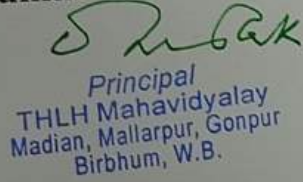 Principal
THLH Mahavidyalay
Madian, Mallarpur, Gonpur
Birbhum, W.B.